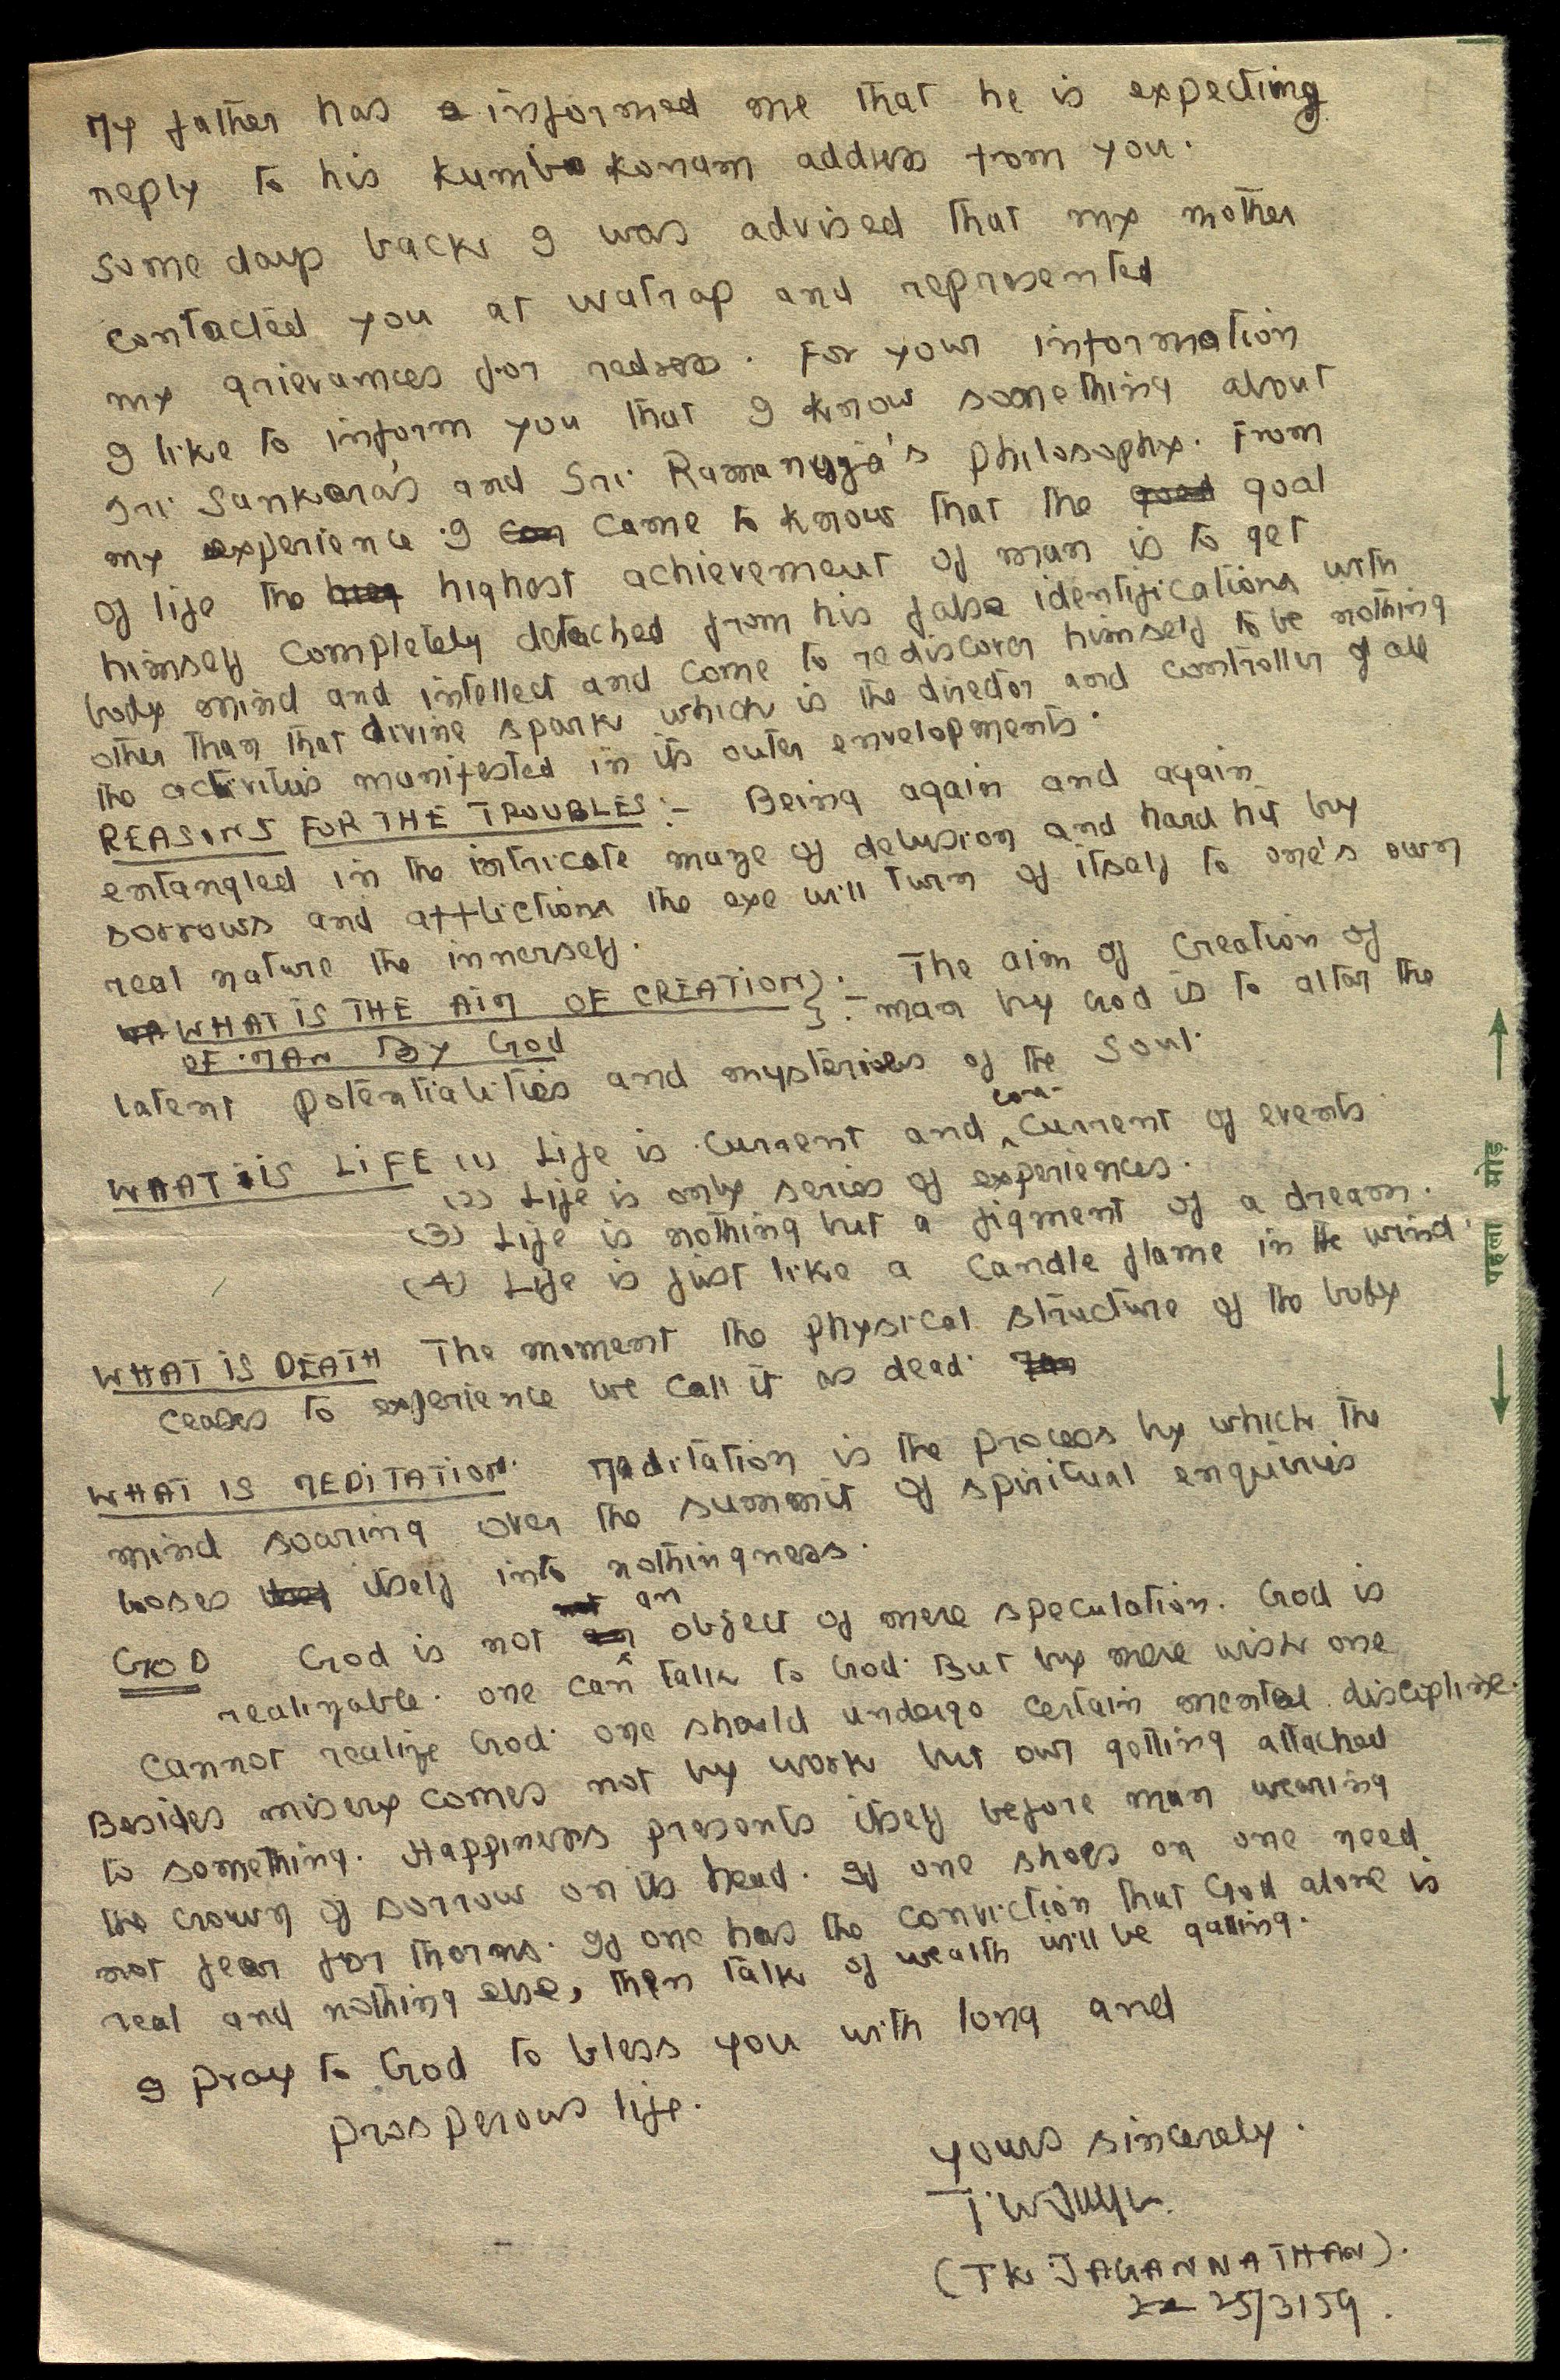 My father has informed me that he is expecting
reply to his Kumbakonam address from you.
Some days back I was advised that my mother
contacted you at Watrap and represented
my grievances for redress. For your information
I like to inform you that I know something about
Sri Sankara's and Sri Ramanuja's philosophy. From
my experience I came to know that the goal
of life the highest achievement of man is to get
himself completely detached from his false identifications with
body mind and intellect and come to rediscover himself to be nothing
other than that divine spark which is the director and controller of all
the activities manifested in its outer envelopments.
REASONS FOR THE TROUBLES :- Being again and again
entangled in the intricate maze of delusion and hard hit by
sorrows and afflictions the eye will turn of itself to one's own
real nature the innerself.
WHAT IS THE AIM OF CREATION } :- The aim of creation of
OF MAN BY GOD man by God is to alter the
latent potentialities and mysteries of the soul.
WHAT IS LIFE (1) Life is current and con-current of events
(2) Life is only series of experiences.
(3) Life is nothing but a figment of a dream.
(4) Life is just like a candle flame in the wind.
WHAT IS DEATH The moment the physical structure of the body
ceases to experience we call it as dead.
WHAT IS MEDITATION. Meditation is the process by which the
mind soaring over the summit of spiritual enquiries
looses itself into nothingness.
GOD God is not an object of mere speculation. God is
realizable. One can talk to God. But by mere wish one
cannot realize God. One should undergo certain mental discipline.
Besides misery comes not by work but our getting attached
to something. Happiness presents itself before man wearing
the crown of sorrow on its head. If one shoes on one need
not fear for thorns. If one has the conviction that God alone is
real and nothing else, then talk of wealth will be galling.
I pray to God to bless you with long and
prosperous life.
Yours sincerely.
(TK JAGANNATHAN).
25/3/59.
पहला मोड़